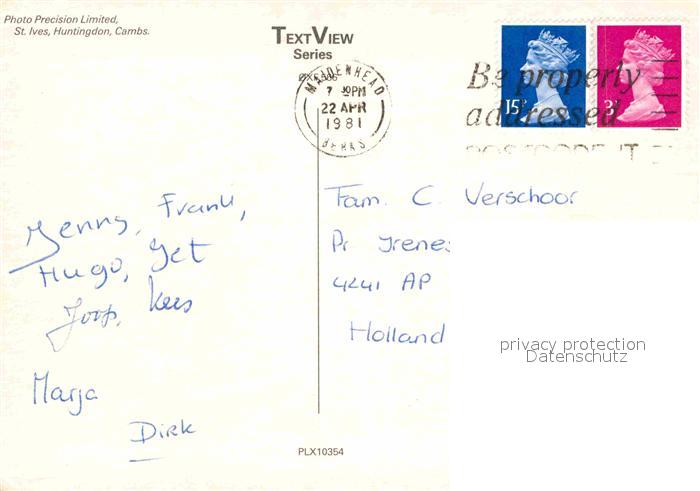 Photo Precision Limited,
St. Ives, Huntingdon, Cambs.
TEXTVIEW
Series
MAIDENHEAD
7 30PM
22 APR
1981
BERKS
Be properly
addressed
POSTCODE IT
15P
3
Jenny, Frank,
Hugo, Jet
Joop, Kees
Marja
Dirk
Fam. C. Verschoor
Pr Irenes
4241 AP
Holland
privacy protection
Datenschutz
PLX10354